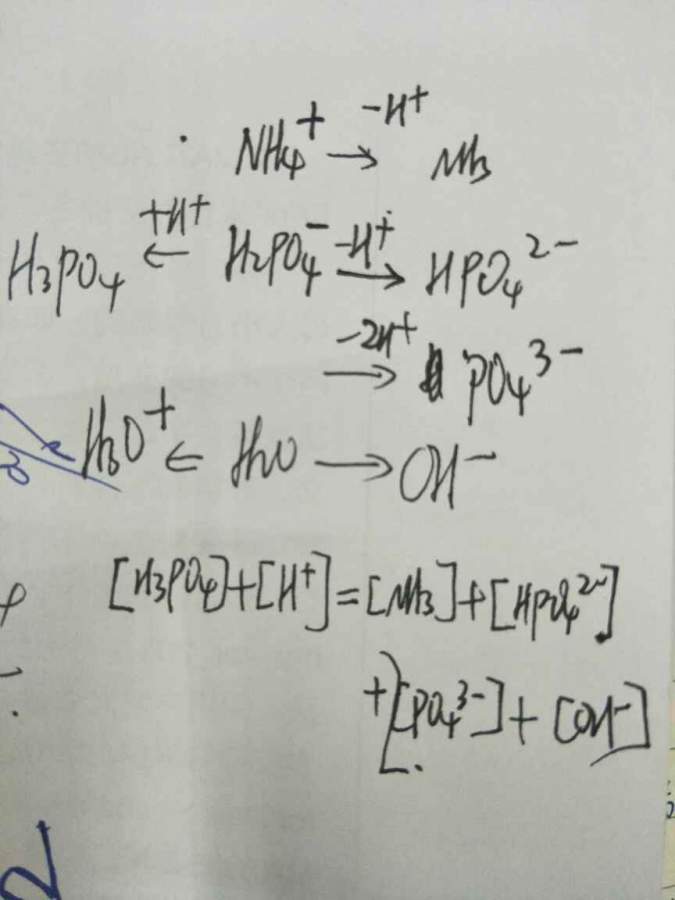 -H⁺
NH₄⁺ → NH₃
+H⁺ -H⁺
H₃PO₄ ← H₂PO₄⁻ → HPO₄²⁻
-2H⁺
→ PO₄³⁻
H₃O⁺ ← H₂O → OH⁻
[H₃PO₄]+[H⁺]=[NH₃]+[HPO₄²⁻]
+[PO₄³⁻]+[OH⁻]
2